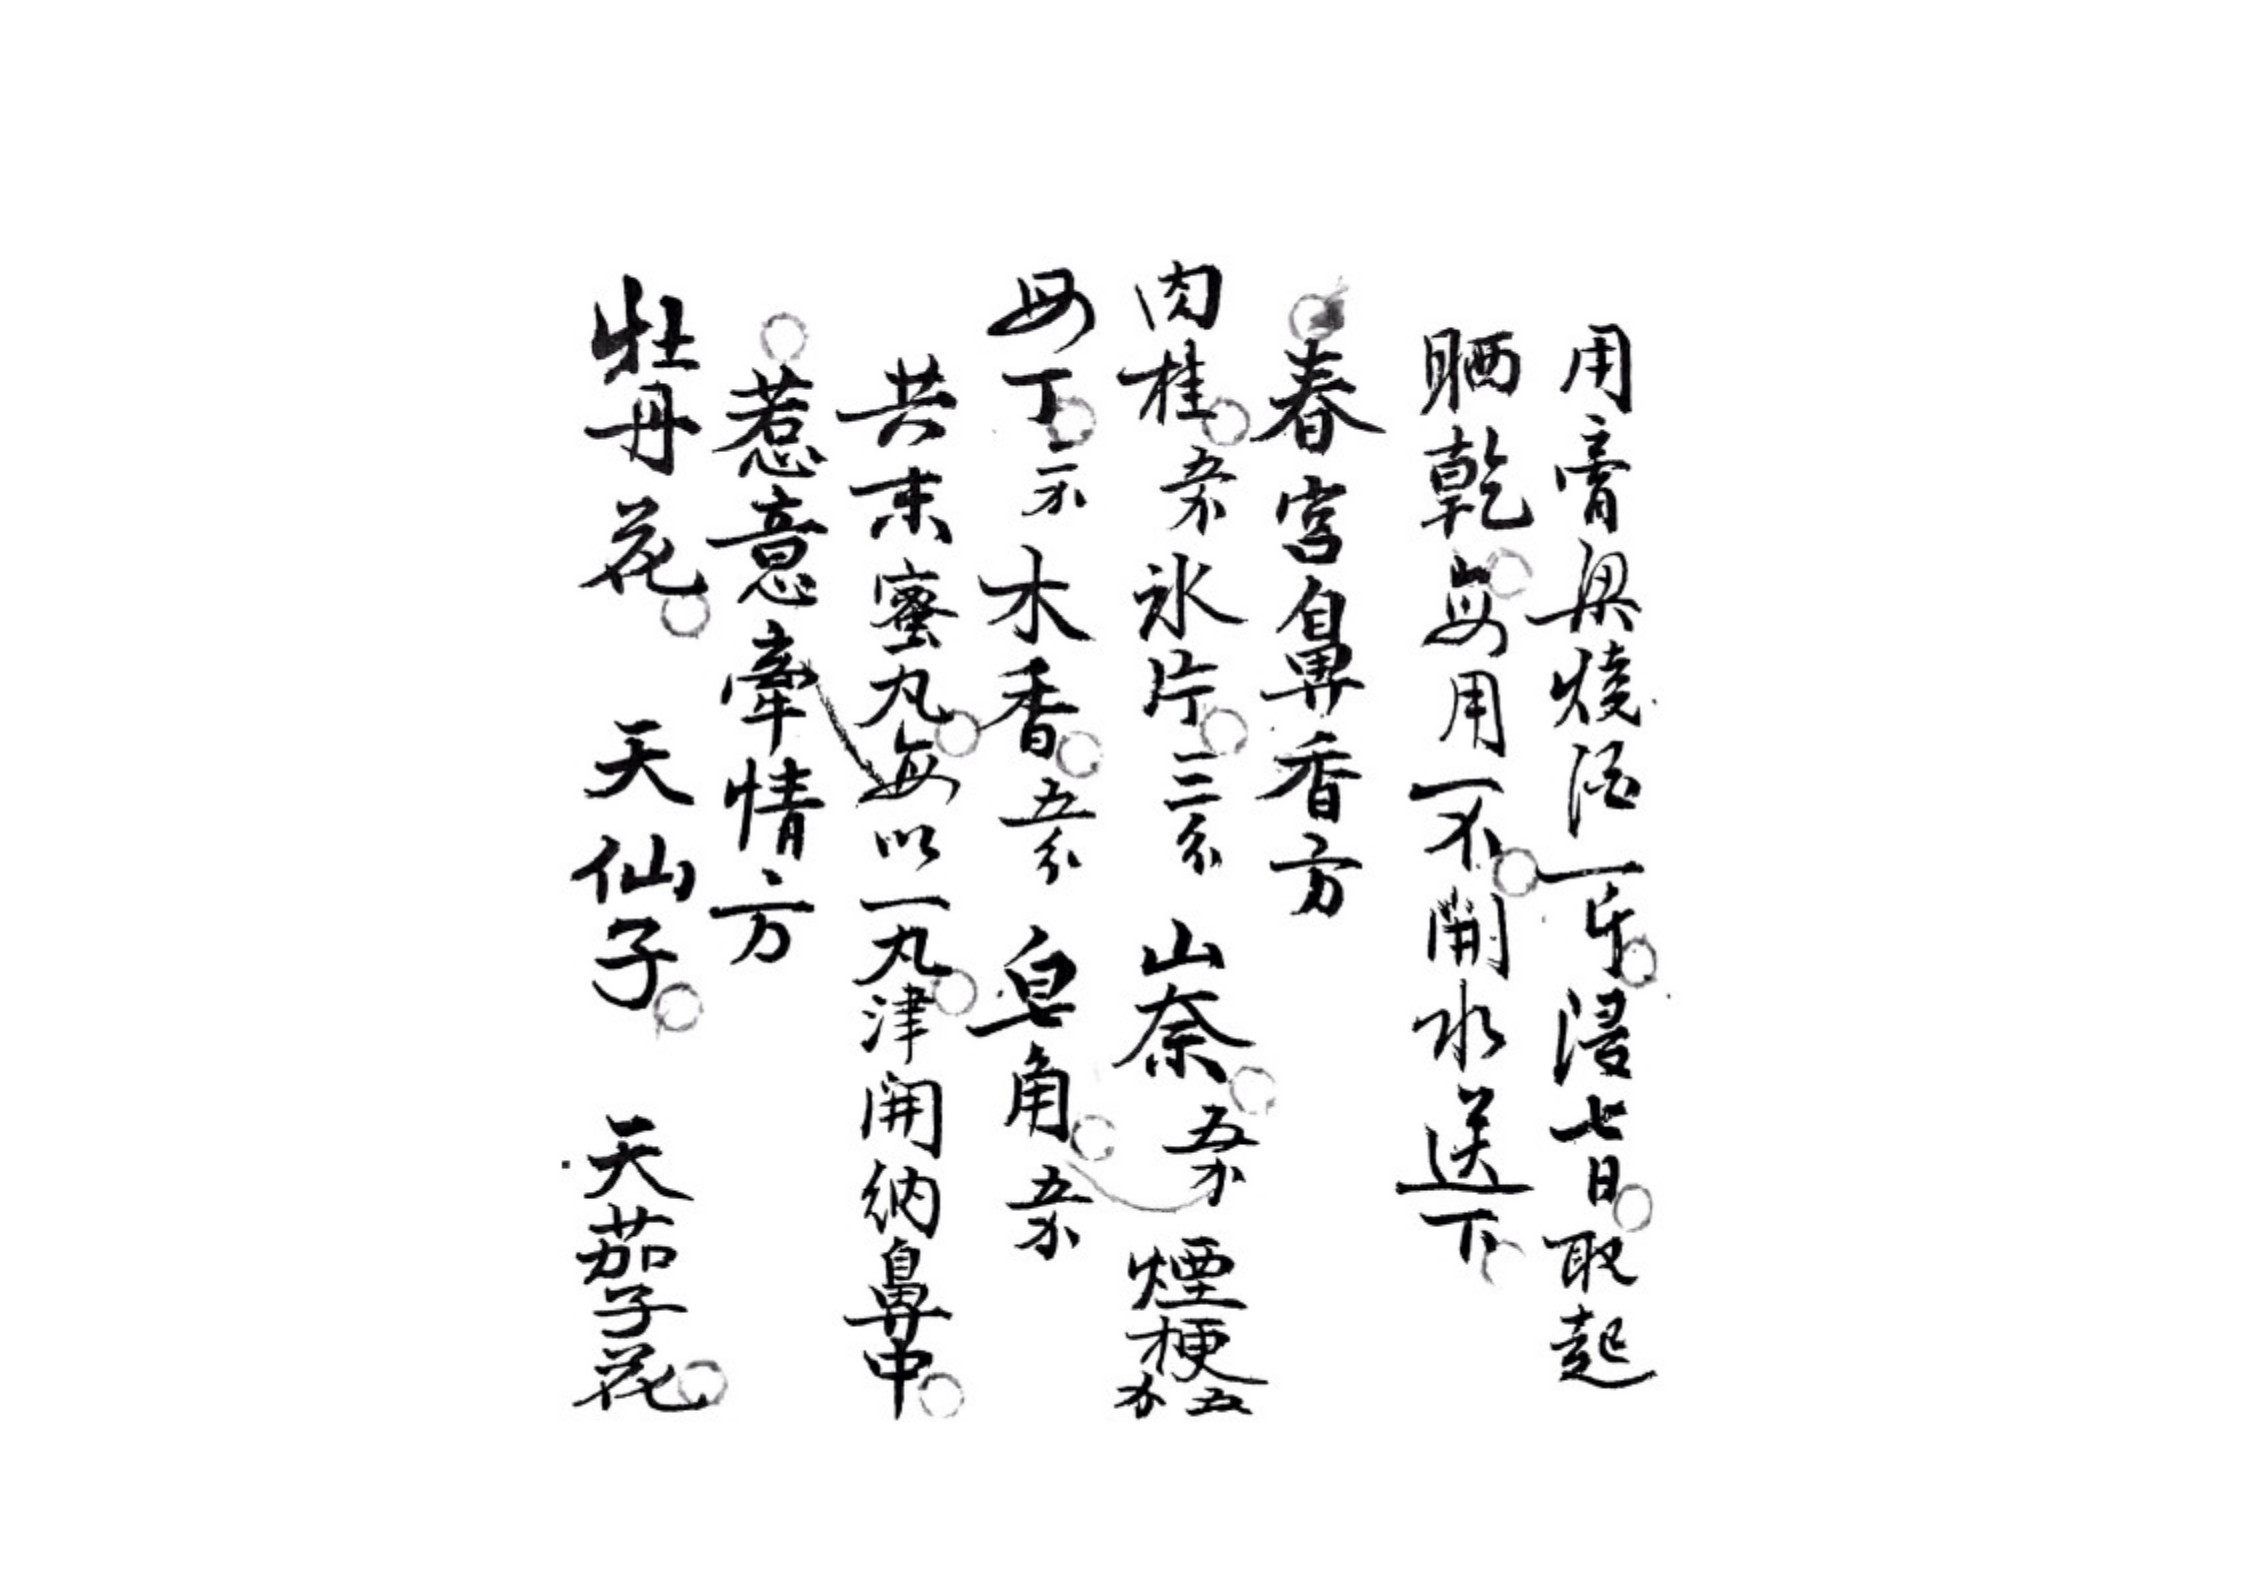 用膏梁燒酒一斤浸七日取起
晒乾每用一分開水送下
春宮鼻香方
肉桂五分氷片三分山奈五分煙梗五分
母丁二分木香五分皂角五分
共末蜜丸每以一丸津開納鼻中
惹意牽情方
牡丹花 天仙子 天茄子花